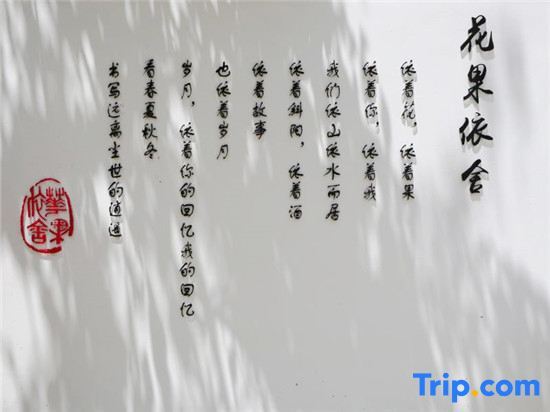 花果依舍
依着花，依着果
依着你，依着我
我们依山依水而居
依着斜阳，依着酒
依着故事
也依着岁月
岁月，依着你的回忆我的回忆
看春夏秋冬
书写远离尘世的逍遥
華果依舍
Trip.com